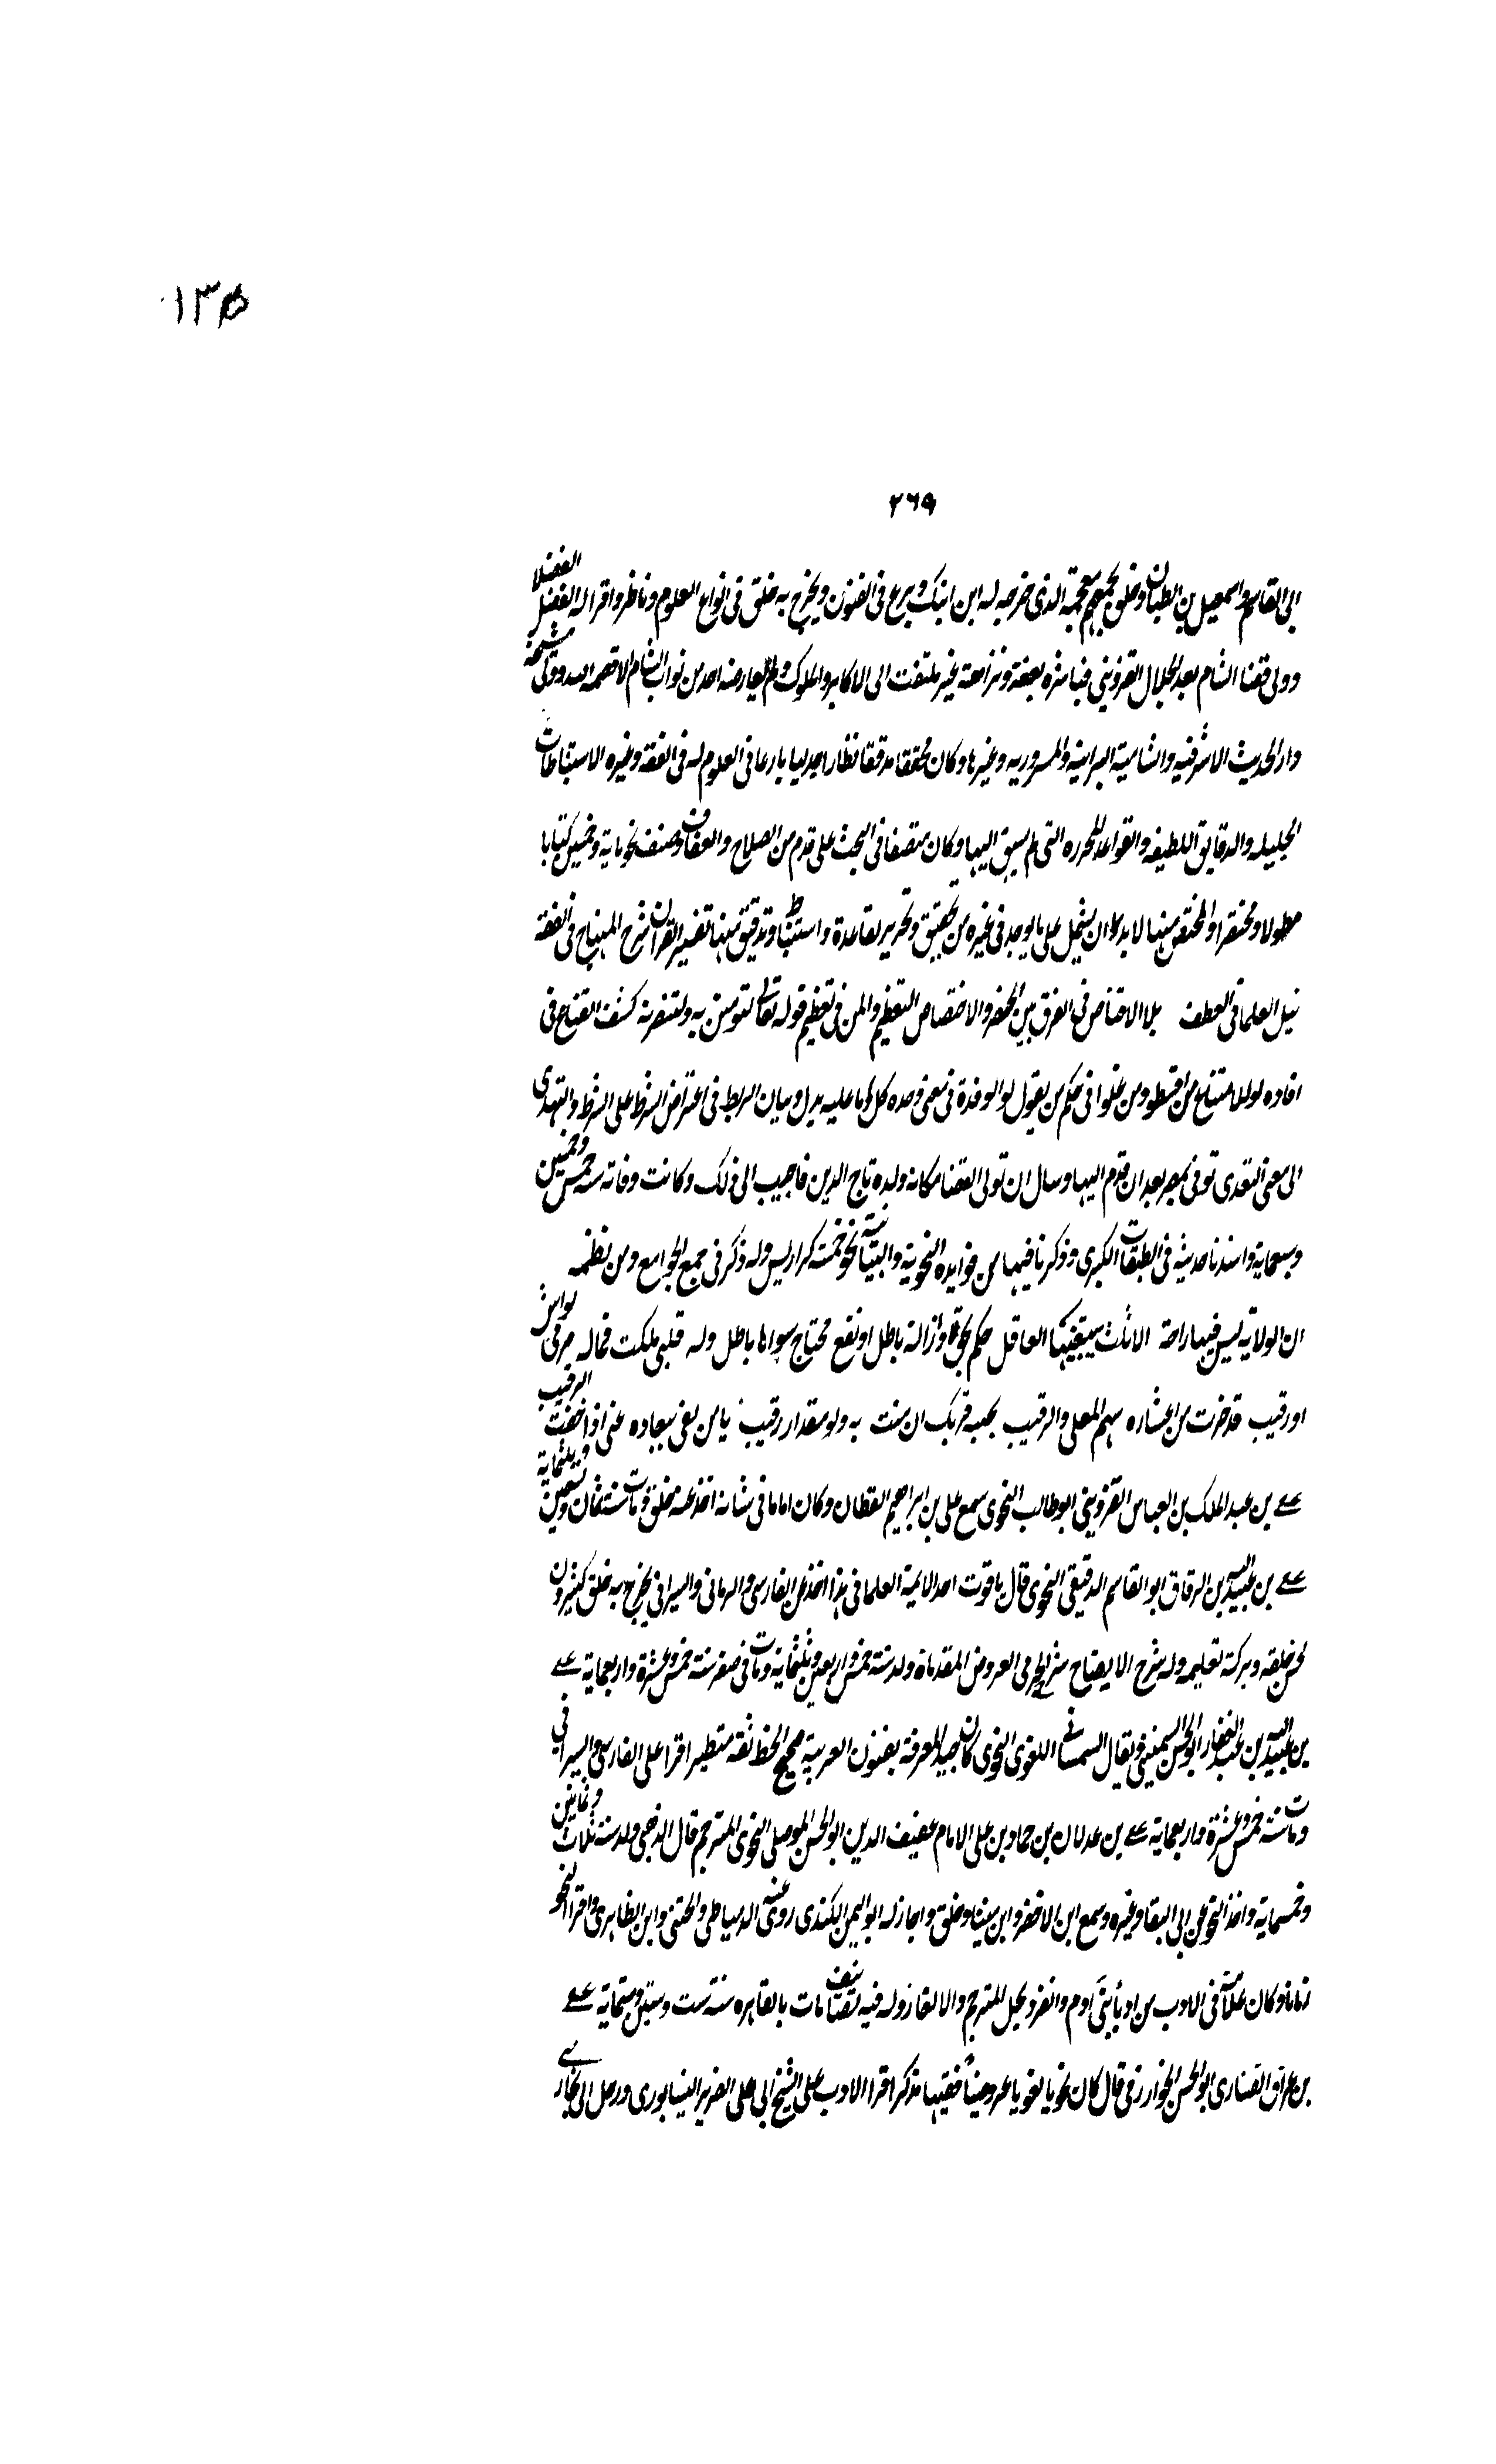 ١٣٥
٢٦٩
الفضلا
ابى القاسم واسمعيل بن الطبال وخلق يجمعهم معجمه الذى خرجه له ابن ايبك وبرع فى الفنون ويخرج به خلق فى انواع العلوم وناظر واقر له الفضل
وولى قضا الشام بعد الجلال القزوينى فباشره بعفة ونزاهة غير ملتفت الى الاكابر والملوك ولم يعارضه احد من نواب الشام الا قصمه الله وولى مشيخة
دار الحديث الاشرفيه والشامية البرانية والمسروريه وغيرها وكان محققا مدققا نظارا جدليا بارعا فى العلوم له فى الفقه وغيره الاستنباطات
الجليله والدقايق اللطيفه والقواعد المحرره التى لم يسبق اليها وكان منصفا فى البحث على قدم من الصلاح والعفاف وصنف نحو ماية وخمسين كتابا
مطولا ومختصرا والمختصر منها لا بد وان يشتمل على ما لا يوجد فى غيره من تحقيق وتحرير لقاعدة واستنباط وتدقيق منها تفسير القران شرح المنهاج فى الفقه
نيل العلا فى العطف بلا الاقتناص فى الفرق بين الحصر والاختصاص التعظيم والمن فى تعظيم قوله تعالى لتومنن به ولتنصرنه كشف القناع فى
افاده لولا امتناع من اقسطو ومن غلوا فى حكم من يقول لو الوفدة فى معنى وحده كل وما عليه يدل وبيان الربط فى اعتراض الشرط على الشرط والتهدى
الى معنى التعدى توفى بمصر بعد ان قدم اليها وسال ان تولى القضا مكانه ولده تاج الدين فاجيب الى ذلك وكانت وفاته سنة خمس وخمسين
وسبعماية واسندنا حديثه فى الطبقات الكبرى وذكرنا فيها من فوايده النحوية والبيانية نحو خمسة كراريس وله ذكر فى جمع الجوامع ومن نظمه
ان الولاية ليس فيها راحة الا ثلث يبتغيها العاقل حكم بحق او ازالة باطل او نفع محتاج سواها باطل وله قلبى ملكت فماله مرمى لواش
او رقيب قد حزت من اعشاره سهم المعلى والرقيب يحييه قربك ان مننت به ولو مقدار رقيب يا من لغى ببعاده عنى اذا خفت الرقيب
على بن عبد الملك بن العباس القزوينى ابو طالب النحوى سمع على بن ابراهيم القطان وكان اماما فى شانه اخذ عنه خلق ومات سنة ثمان وتسعين وثلثماية
على بن عبيد الله بن الدقاق ابو القاسم الدقيقى النحوى قال ياقوت احد الايمة العلما فى هذا اخذ عن الفارسى والرمانى والسيرافى تخرج به خلق كثيرون
لحسن خلقه وبركة تعليمه وله شرح الايضاح شرح الجرمى العروض المقدمات ولد سنة خمس واربعين وثلثماية ومات فى صفر سنة خمس عشرة واربعماية على
بن عبيد الله بن عبد الغفار ابو الحسن السمسمى ويقال السمسمانى اللغوى النحوى كان جيد المعرفة بفنون العربية صحيح الخط ثقة متطيرا قرا على الفارسى والسيرافى
ومات سنة خمس عشرة واربعماية على بن عدلان بن حماد بن على الامام عفيف الدين ابو الحسن الموصلى النحوى المترجم قال الذهبى ولد سنة ثلاث وثمانين
وخمسماية واخذ النحو عن ابى البقا وغيره وسمع ابن الاخضر وابن مينا وخلق واجاز له ابو اليمن الكندى روى عنه الدمياطى والختنى وابن الظاهرى واقرا النحو
زمانا وكان علامة فى الادب من اذكيا بنى ادم وانفرد بحل المترجم والالغاز وله فيه تصانيف مات بالقاهره سنة ست وستين وستماية على
بن عراق الصنارى ابو الحسن الخوارزمى قال كان نحويا لغويا عروضيا فقيها مذكرا قرا الادب على الشيخ ابى على الضرير النيسابورى ورحل الى بخارى